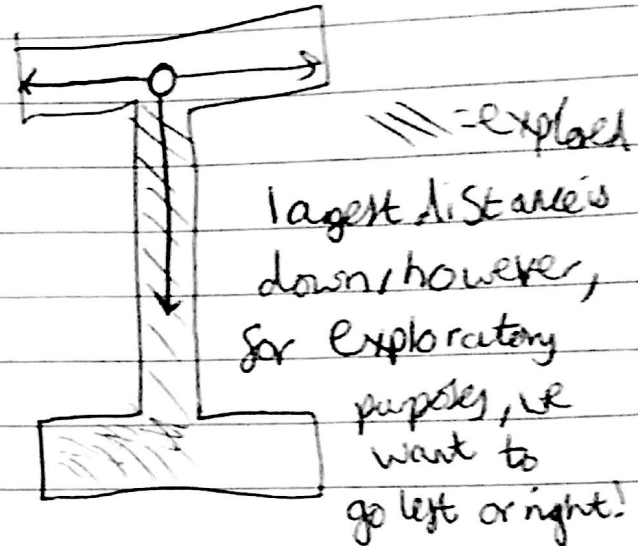 = explored
largest distance is
down, however,
for exploratory
purposes, we
want to
go left or right!